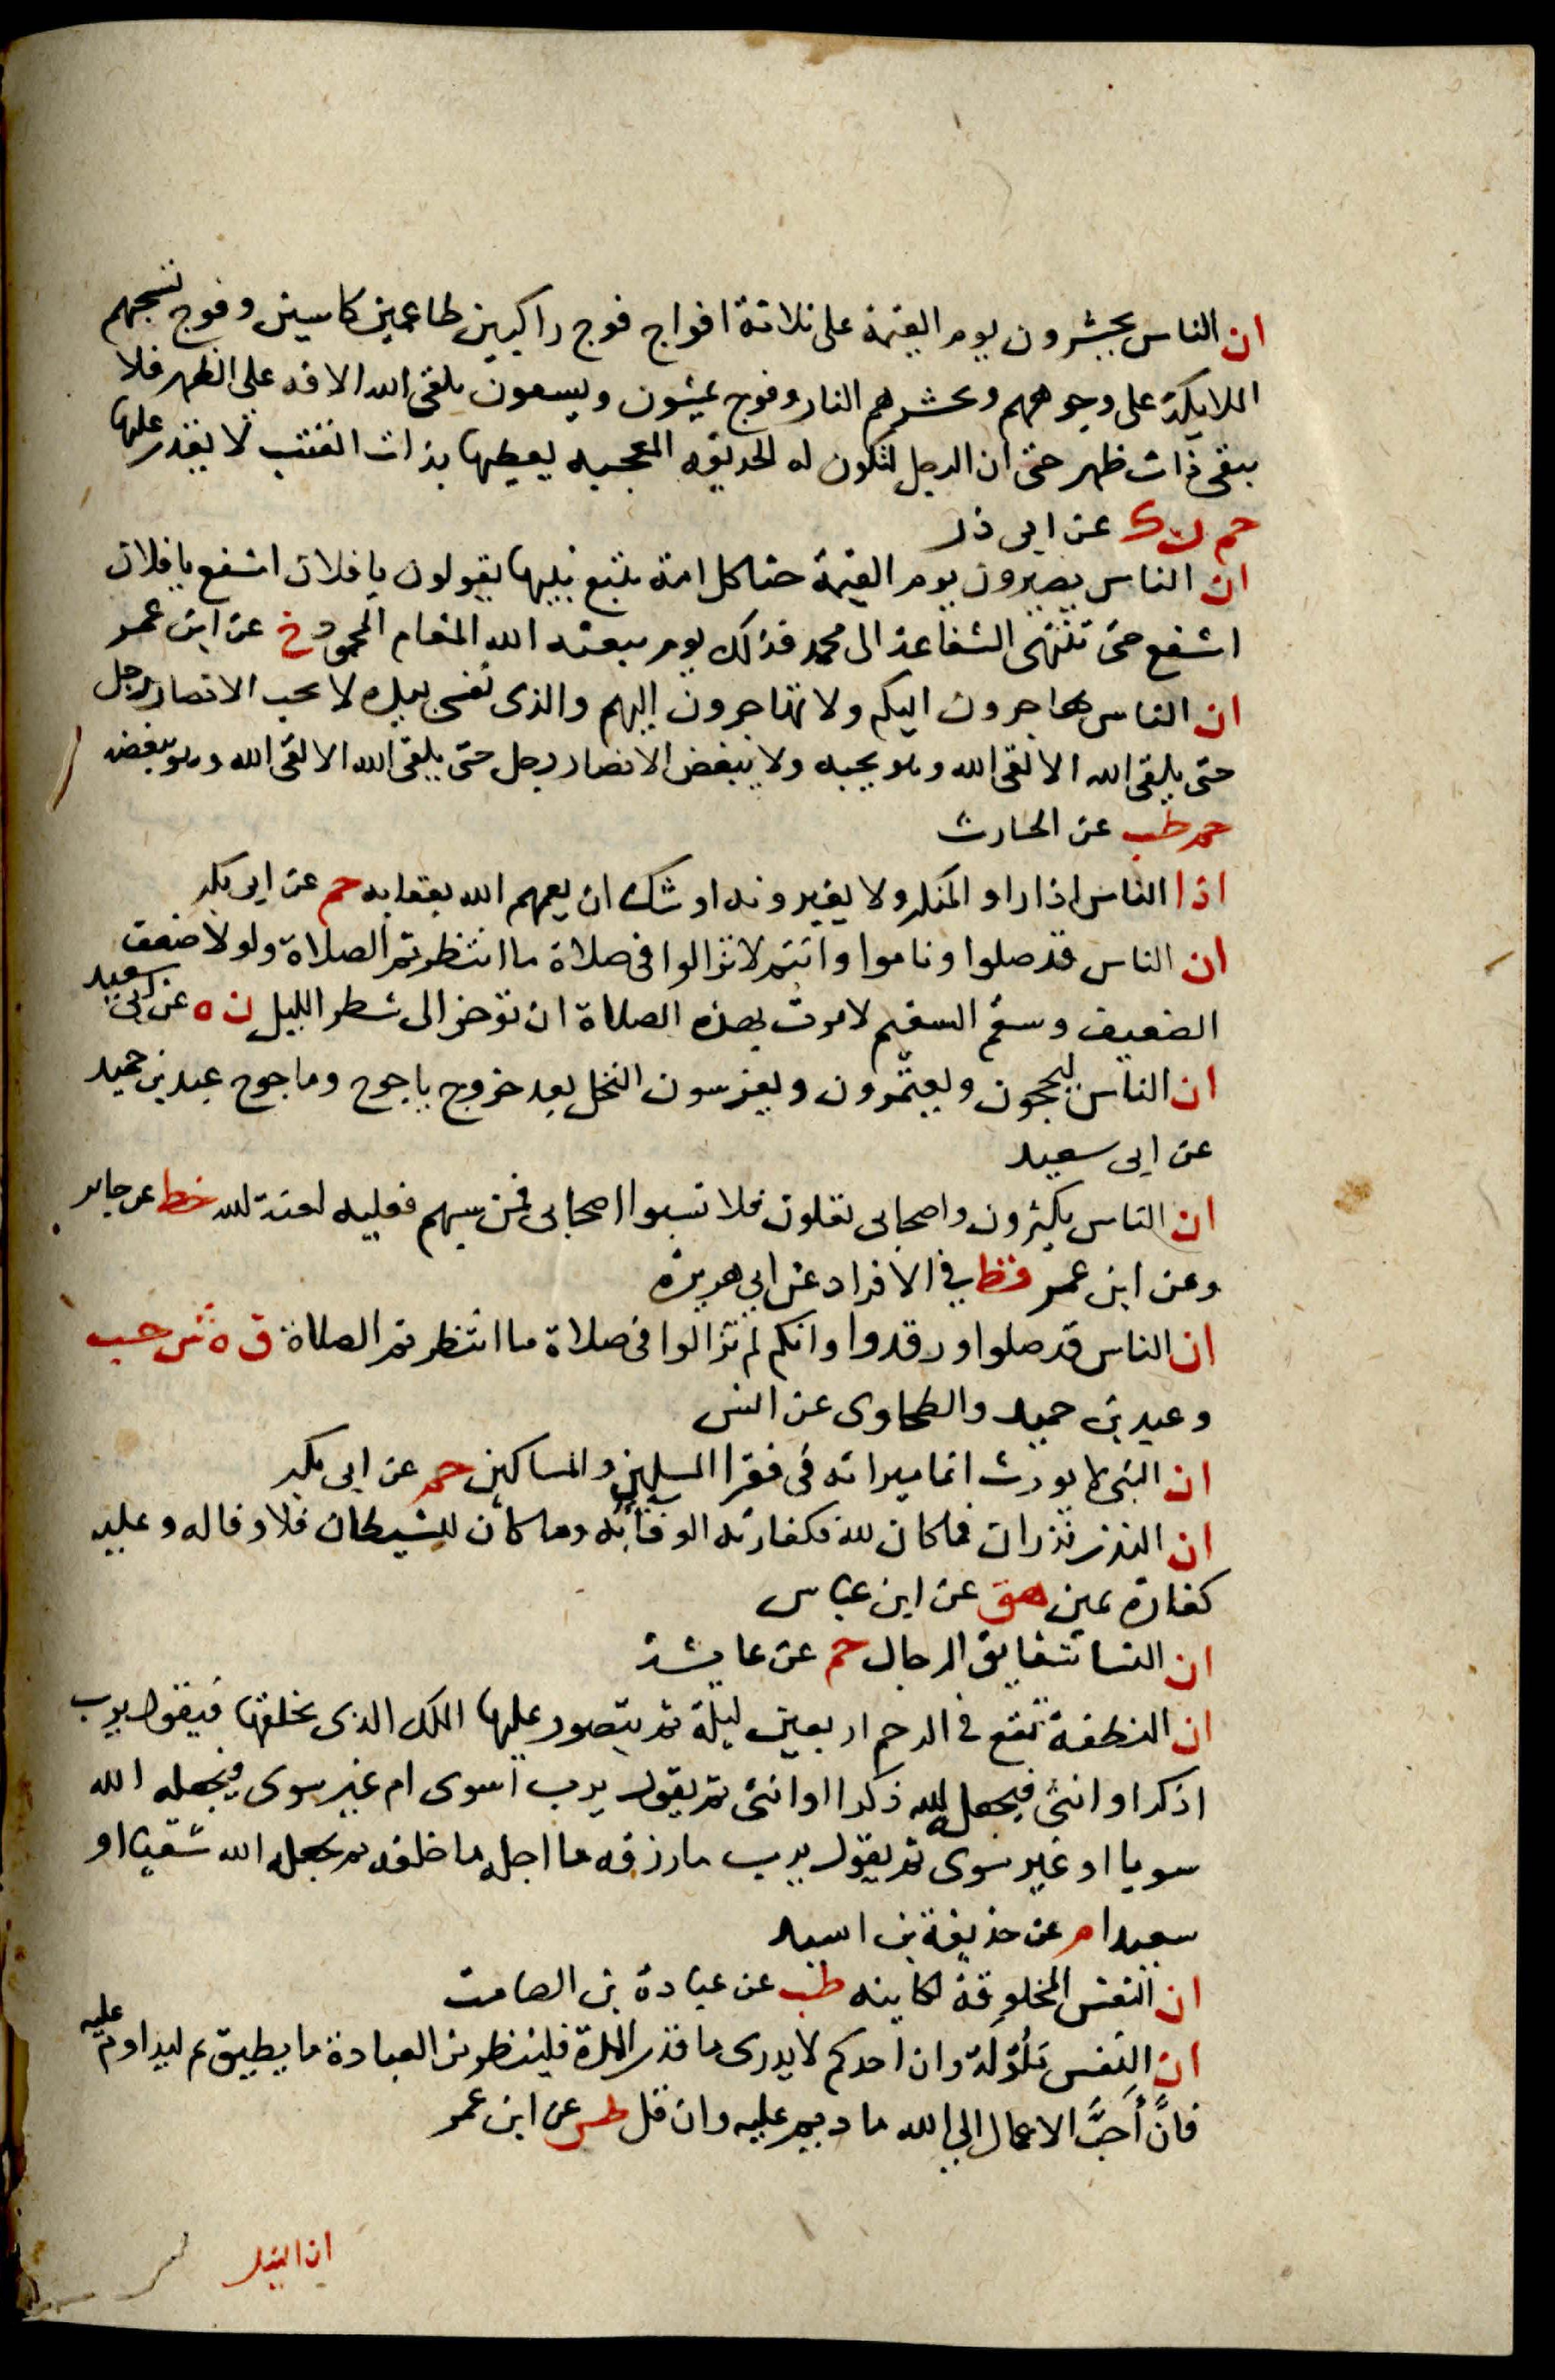 ان الناس يحشرون يوم القيمة على ثلاثة افواج فوج راكبين طاعمين كاسين وفوج تسحبهم
الملايكة على وجوههم وتحشرهم النار وفوج يمشون ويسعون يلقى الله الافه على الظهر فلا
يبقى ذات ظهر حتى ان الرجل لتكون له الحديقه المعجبه يعطيها بذات القتب لا يقدر عليها
حم ن ك عن ابى ذر
ان الناس يصيرون يوم القيمة جثا كل امة تتبع نبيها يقولون يا فلان اشفع يا فلان
اشفع حتى تنتهى الشفاعة الى محمد فذلك يوم يبعثه الله المقام المحمود خ عن ابن عمر
ان الناس يهاجرون اليكم ولا تهاجرون اليهم والذى نفسى بيده لا يحب الانصار رجل
حتى يلقى الله الا لقى الله وهو يحبه ولا يبغض الانصار رجل حتى يلقى الله الا لقى الله وهو يبغضه
حم طب عن الحارث
اذا الناس اذا راو المنكر ولا يغيرونه اوشك ان يعمهم الله بعقابه حم عن ابى بكر
ان الناس قد صلوا وناموا وانتم لا تزالوا فى صلاة ما انتظرتم الصلاة ولولا ضعف
الضعيف وسقم السقيم لامرت بهذه الصلاة ان توخر الى شطر الليل ن ه عن ابى سعيد
ان الناس ليحجون ويعتمرون ويغرسون النخل بعد خروج ياجوج وماجوج عبد بن حميد
عن ابى سعيد
ان الناس يكثرون واصحابى يقلون فلا تسبوا اصحابى فمن سبهم فعليه لعنة الله خط عن جابر
وعن ابن عمر قط في الافراد عن ابي هريرة
ان الناس قد صلوا ورقدوا وانكم لم تزالوا فى صلاة ما انتظرتم الصلاة ق ه ش حب
وعبد بن حميد والطحاوى عن انس
ان النبى لا يورث انما ميراثه فى فقرا المسلمين والمساكين حم عن ابى بكر
ان النذر نذران فما كان لله فكفارته الوفا به وما كان للشيطان فلا وفا له وعليه
كفارة يمين هق عن ابن عباس
ان النسا شقايق الرجال حم عن عايشة
ان النطفة تقع فى الرحم اربعين ليلة ثم يتصور عليها الملك الذى يخلقها فيقول يرب
اذكر او انثى فيجعله الله ذكرا او انثى ثم يقول يرب اسوى ام غير سوى فيجعله الله
سويا او غير سوى ثم يقول يرب ما رزقه ما اجله ما خلقه ثم يجعله الله شقيا او
سعيدا م عن حذيفة بن اسيد
ان النفس المخلوقة لكاينه طب عن عبادة بن الصامت
ان النفس ملولة وان احدكم لا يدرى ما قدر المدة فلينظر من العبادة ما يطيق ثم ليداوم عليه
فان أحب الاعمال الى الله ما ديم عليه وان قل طس عن ابن عمر
ان النيل